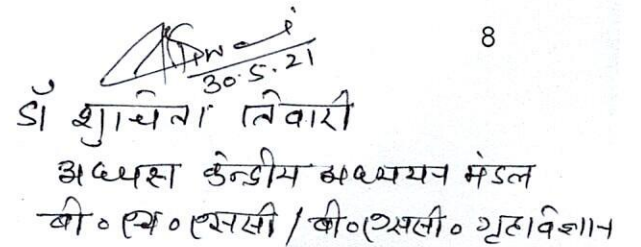 8
30.5.21
डॉ शुचिता तिवारी
अध्यक्ष केन्द्रीय अध्ययन मंडल
बी० एच० एससी / बी०एससी० गृहविज्ञान